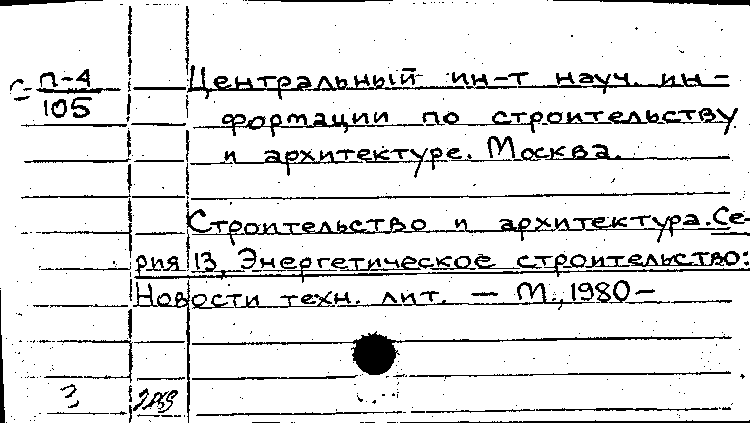 С П-4 Центральный ин-т науч. ин-
105 формации по строительству
и архитектуре. Москва.
Строительство и архитектура. Се-
рия 13, Энергетическое строительство:
Новости техн. лит. — М., 1980—
3